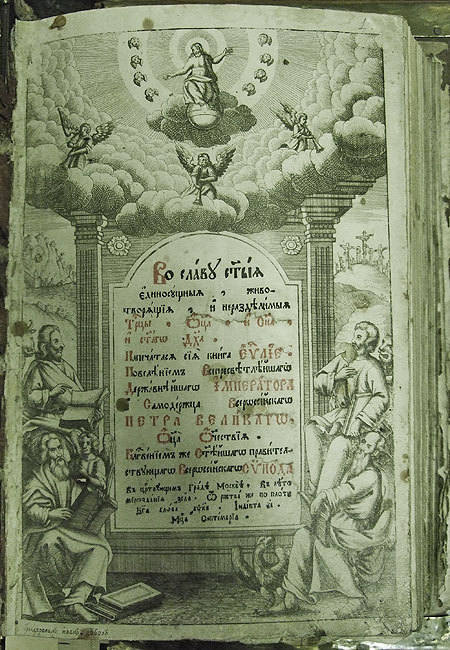 1
Во славу ст҃ыѧ
єдиносущныѧ , живо-
творѧщїѧ , и нераздѣлимыѧ
Трⷪ҇цы , Ѻц҃а , и Сн҃а ,
и ст҃агѡ Дх҃а .
Напечатасѧ сїѧ книга ЕѴⷢ҇ЛЇЕ
Повелѣнїемъ Всепресвѣтлѣйшагѡ
Державнѣйшагѡ ІМПЕРАТОРА
и Самодержца Всерѡссїйскагѡ
ПЕТРА ВЕЛИКАГѠ
Ѻц҃а Ѻтечествїѧ .
Блг҃венїемъ же Ст҃ѣйшагѡ правител-
ствующагѡ Всерѡссїйскагѡ СѴНОДА
въ царствующемъ градѣ Москвѣ . Въ лѣто
мирозданїѧ . Ѿ рж҃тва же по плоти
Бг҃а слова . Індікта
Мцⷭ҇а Септемврїа .
иванъ зубовъ